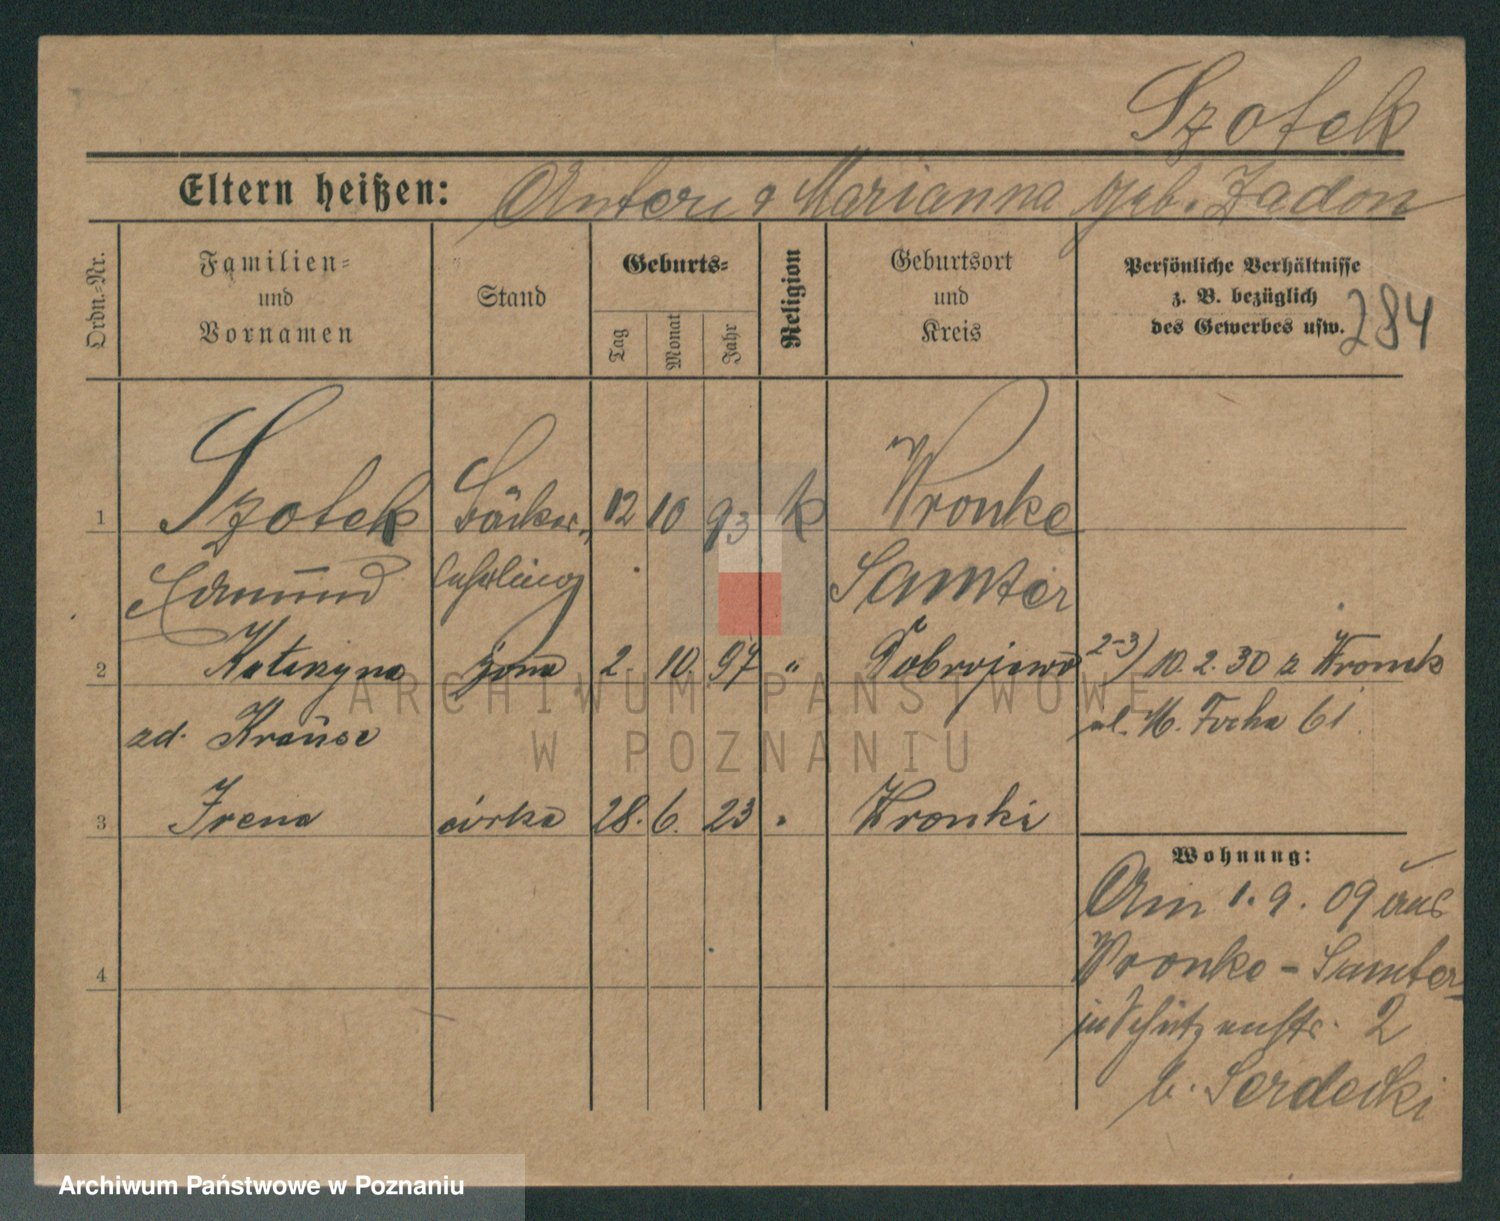 Szofek
Eltern heißen: Anton & Marianna geb. Zadon
Ordn.-Nr.
Familien-
und
Vornamen
Stand
Geburts-
Tag
Monat
Jahr
Religion
Geburtsort
und
Kreis
Persönliche Verhältnisse
z. B. bezüglich
des Gewerbes usw.
284
1 Szofek Bäcker- 12 10 93 k Wronke
Edmund lehrling Samter
2 Katarzyna żona 2. 10. 97 " Dobrojewo 2-3) 10.2.30 z Wronek
zd. Krause ul. M. Focha 61
3 Irena córka 28. 6. 23 " Wronki
4
Wohnung:
Am 1. 9. 09 aus
Wronke - Samter
in Schützenstr. 2
b. Serdecki
ARCHIWUM PAŃSTWOWE
W POZNANIU
Archiwum Państwowe w Poznaniu